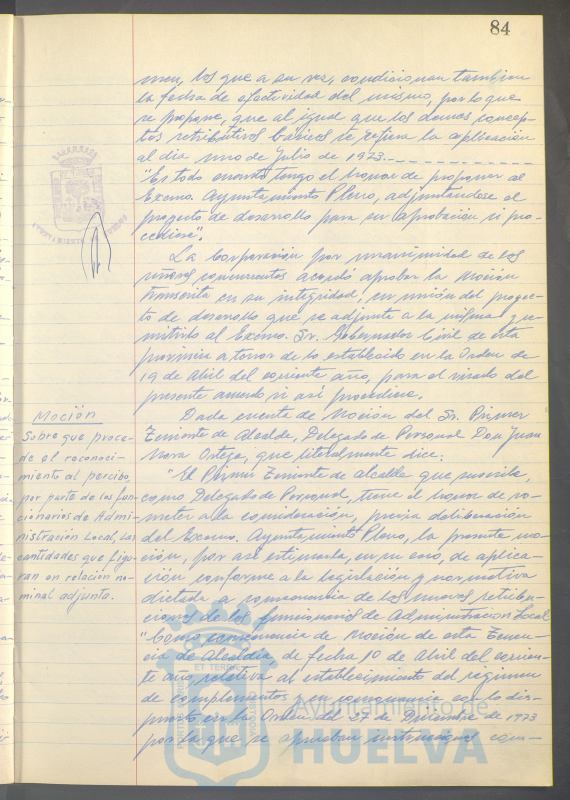 84
men, los que a su vez, condicionan tambien
la fecha de efectividad del mismo, por lo que
se propone, que al igual que los demas concep-
tos retributivos básicos se refiera la aplicación
al dia uno de Julio de 1973.--
"Es todo cuanto tengo el honor de proponer al
Excmo. Ayuntamiento Pleno, adjuntandose el
proyecto de desarrollo para su aprobación si pro-
cediese".
La Corporación por unanimidad de los
señores concurrentes acordó aprobar la Moción
transcrita en su integridad, en unión del proyec-
to de desarrollo que se adjunta a la misma y re-
mitirlo al Excmo. Sr. Gobernador Civil de esta
provincia a tenor de lo establecido en la Orden de
19 de Abril del corriente año, para el visado del
presente acuerdo si así procediese.
Moción
Sobre que proce-
de el reconoci-
miento al percibo,
por parte de los fun-
cionarios de Admi-
nistración Local, las
cantidades que figu-
ran en relación no-
minal adjunta.
Dada cuenta de Moción del Sr. Primer
Teniente de Alcalde, Delegado de Personal Don Juan
Mora Ortega, que literalmente dice:
"El Primer Teniente de Alcalde que suscribe,
como Delegado de Personal, tiene el honor de so-
meter a la consideración, previa deliberación
del Excmo. Ayuntamiento Pleno, la presente mo-
ción, por así estimarla, en su caso, de aplica-
ción conforme a la legislación y normativa
dictada a consecuencia de las nuevas retribu-
ciones de los funcionarios de Administracion Local
"Como consecuencia de Moción de esta Tenen-
cia de Alcaldia de fecha 10 de Abril del corrien-
te año, relativa al establecimiento del regimen
de complementos y en consonancia con lo dis-
puesto en la Orden del 27 de Diciembre de 1973
por la que se aprueban instrucciones com-
Ayuntamiento de
HUELVA